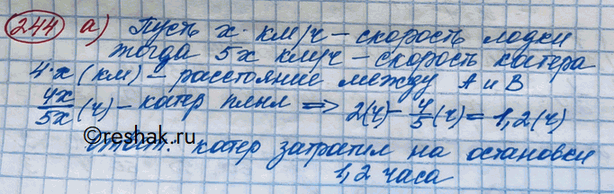 244 а) Пусть x км/ч – скорость лодки
тогда 5x км/ч – скорость катера
4·x (км) – расстояние между A и B
4x/5x (ч) – катер плыл => 2(ч) – 4/5 (ч) = 1,2 (ч)
©reshak.ru
Ответ: катер затратил на остановки
1,2 часа